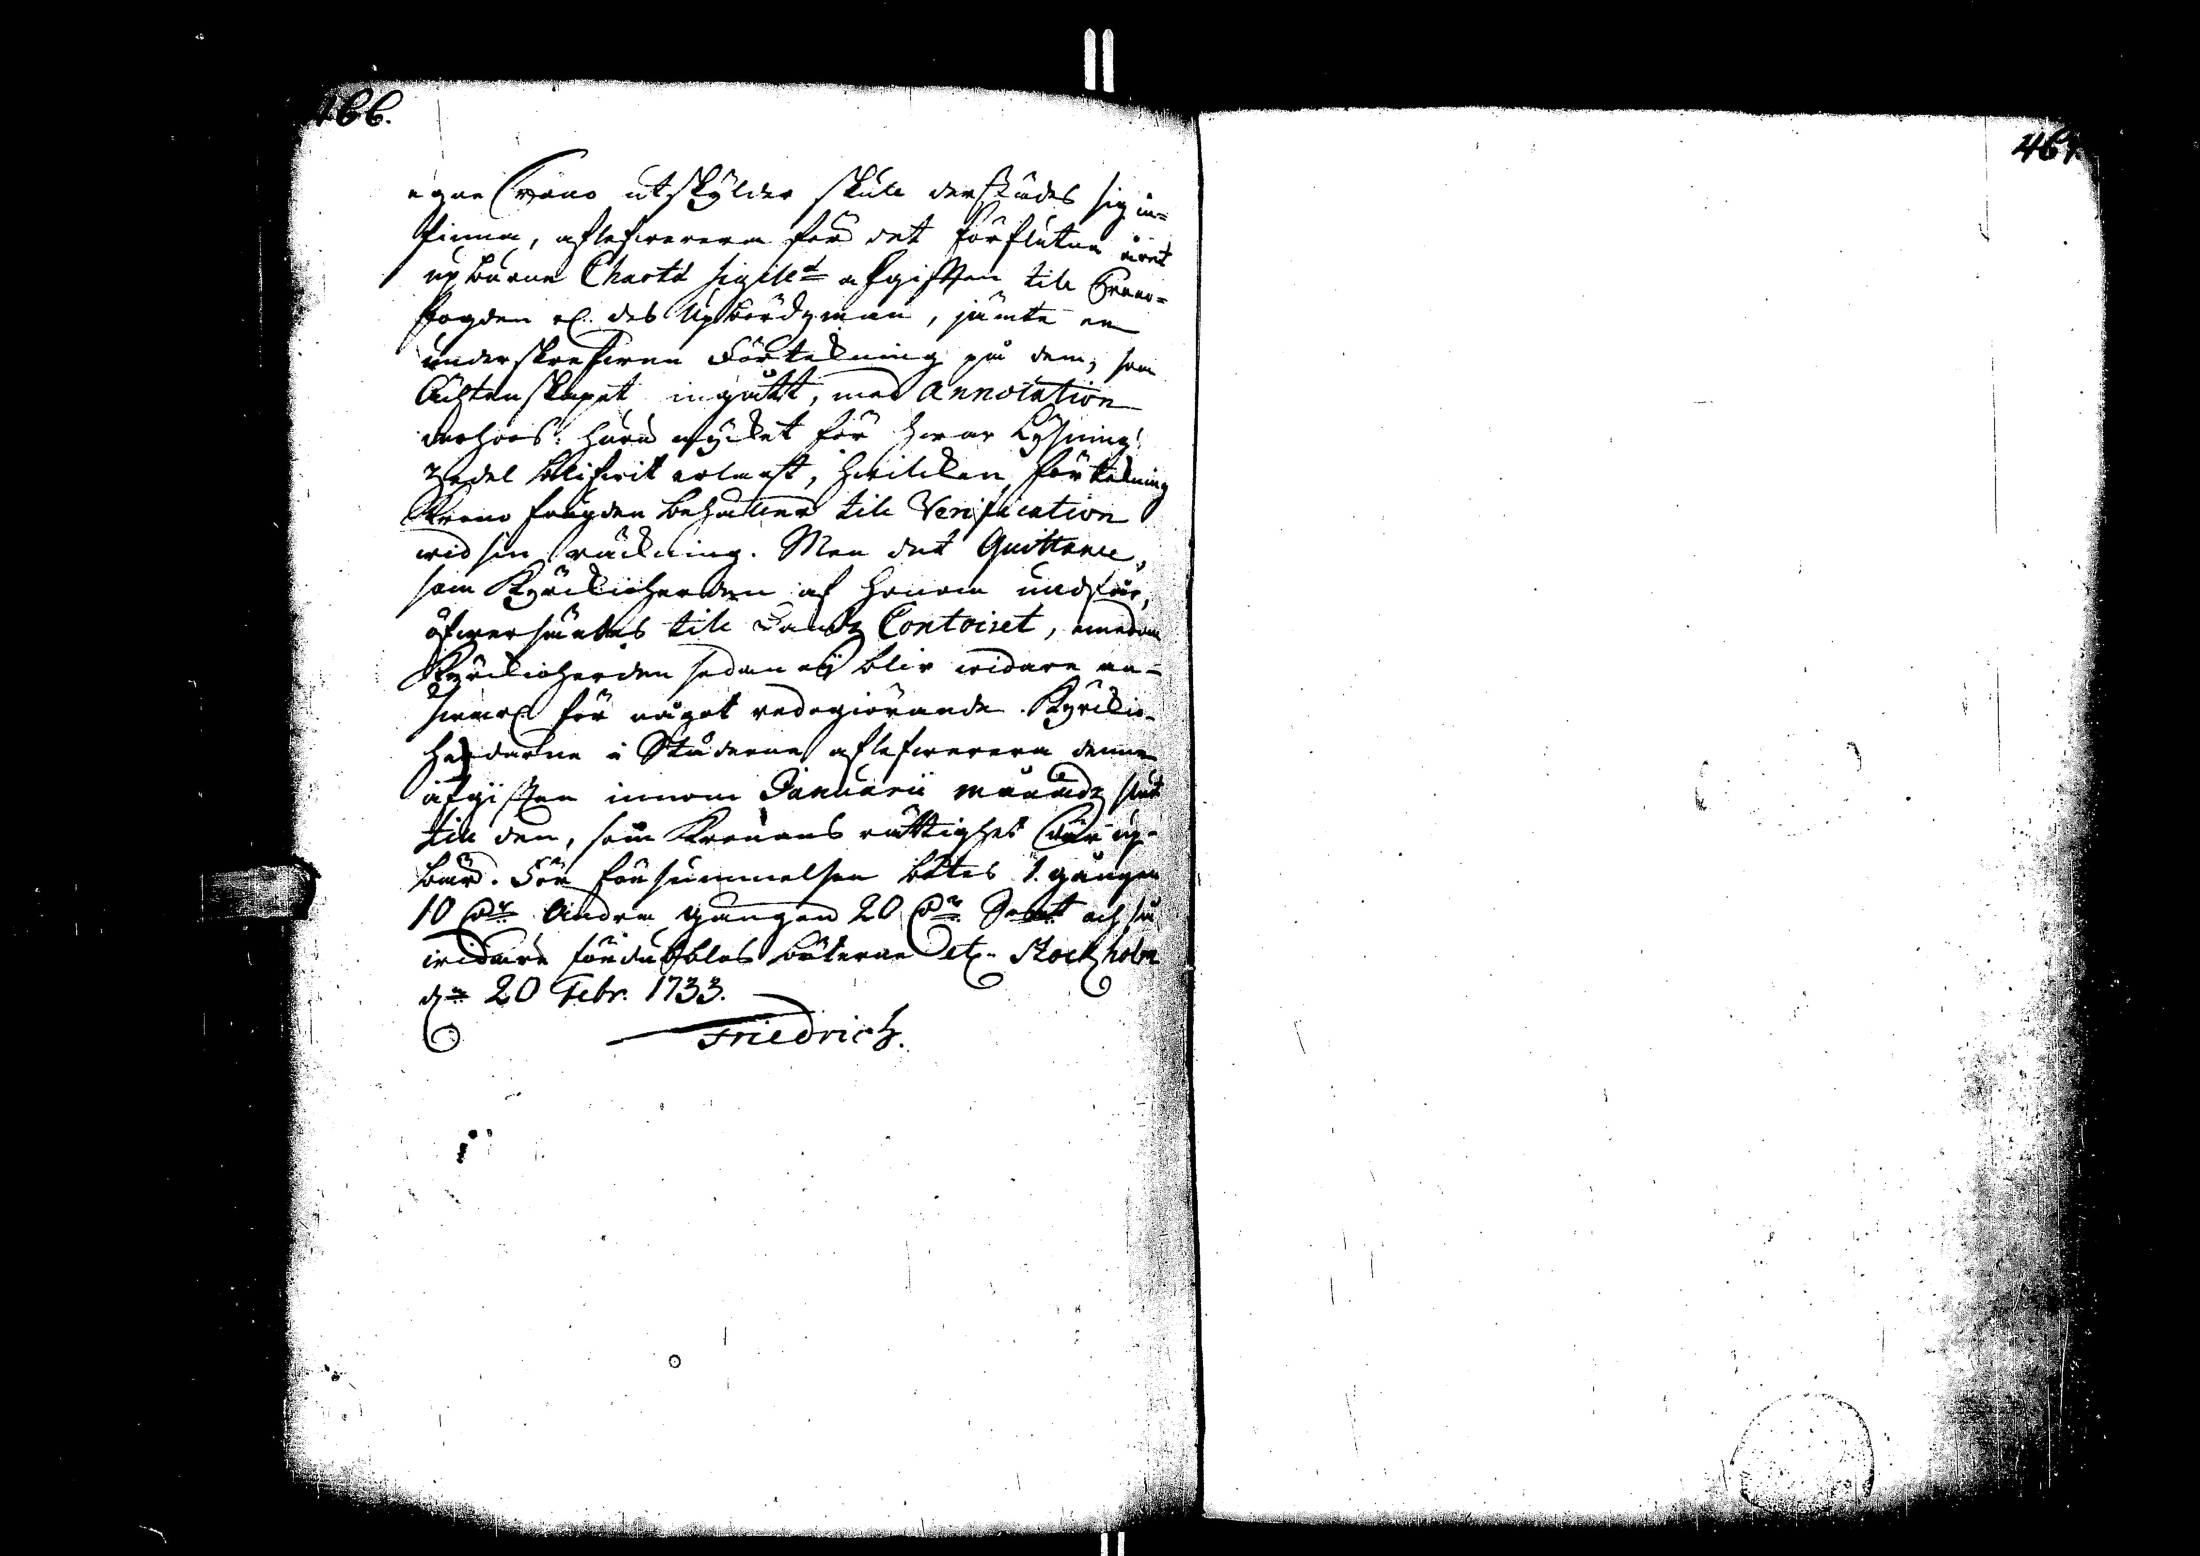 466.
467.
egne Crono utskylder skule derstädes sig in=
finna, aflefwerera för det förflutna året
upburne Charta sigill:ae afgiften till Crono=
fogden el. des Upbördzman, jämte en
underskrefwen Förtekning på dem, som
Ächtenskapet ingått, med Annotation
derhoos: huru mycket för hwar Lysning
zedel blifwit erlagt, hwilken förtekning
Krono fougden behåller till Verification
wid sin räckning. Men det Quittence,
som Kyrckioherden af honom undfår,
öfwersändes till Landz Contoiret, emedan
Kyrckioherden sedan ey blir widare an-
swar för något redogiörande. Kyrckio-
herdarne i Städerne aflefwerera denne
afgiften innom Januarii månadz slut
till den, som Kronans rättighet där up-
bärd. För försummelsen bötes 1. gången
10 Andra gången 20 Smt och så
widare fördubblas böterne etc. Stockholm
d. 20 Febr. 1733.
Friedrich.